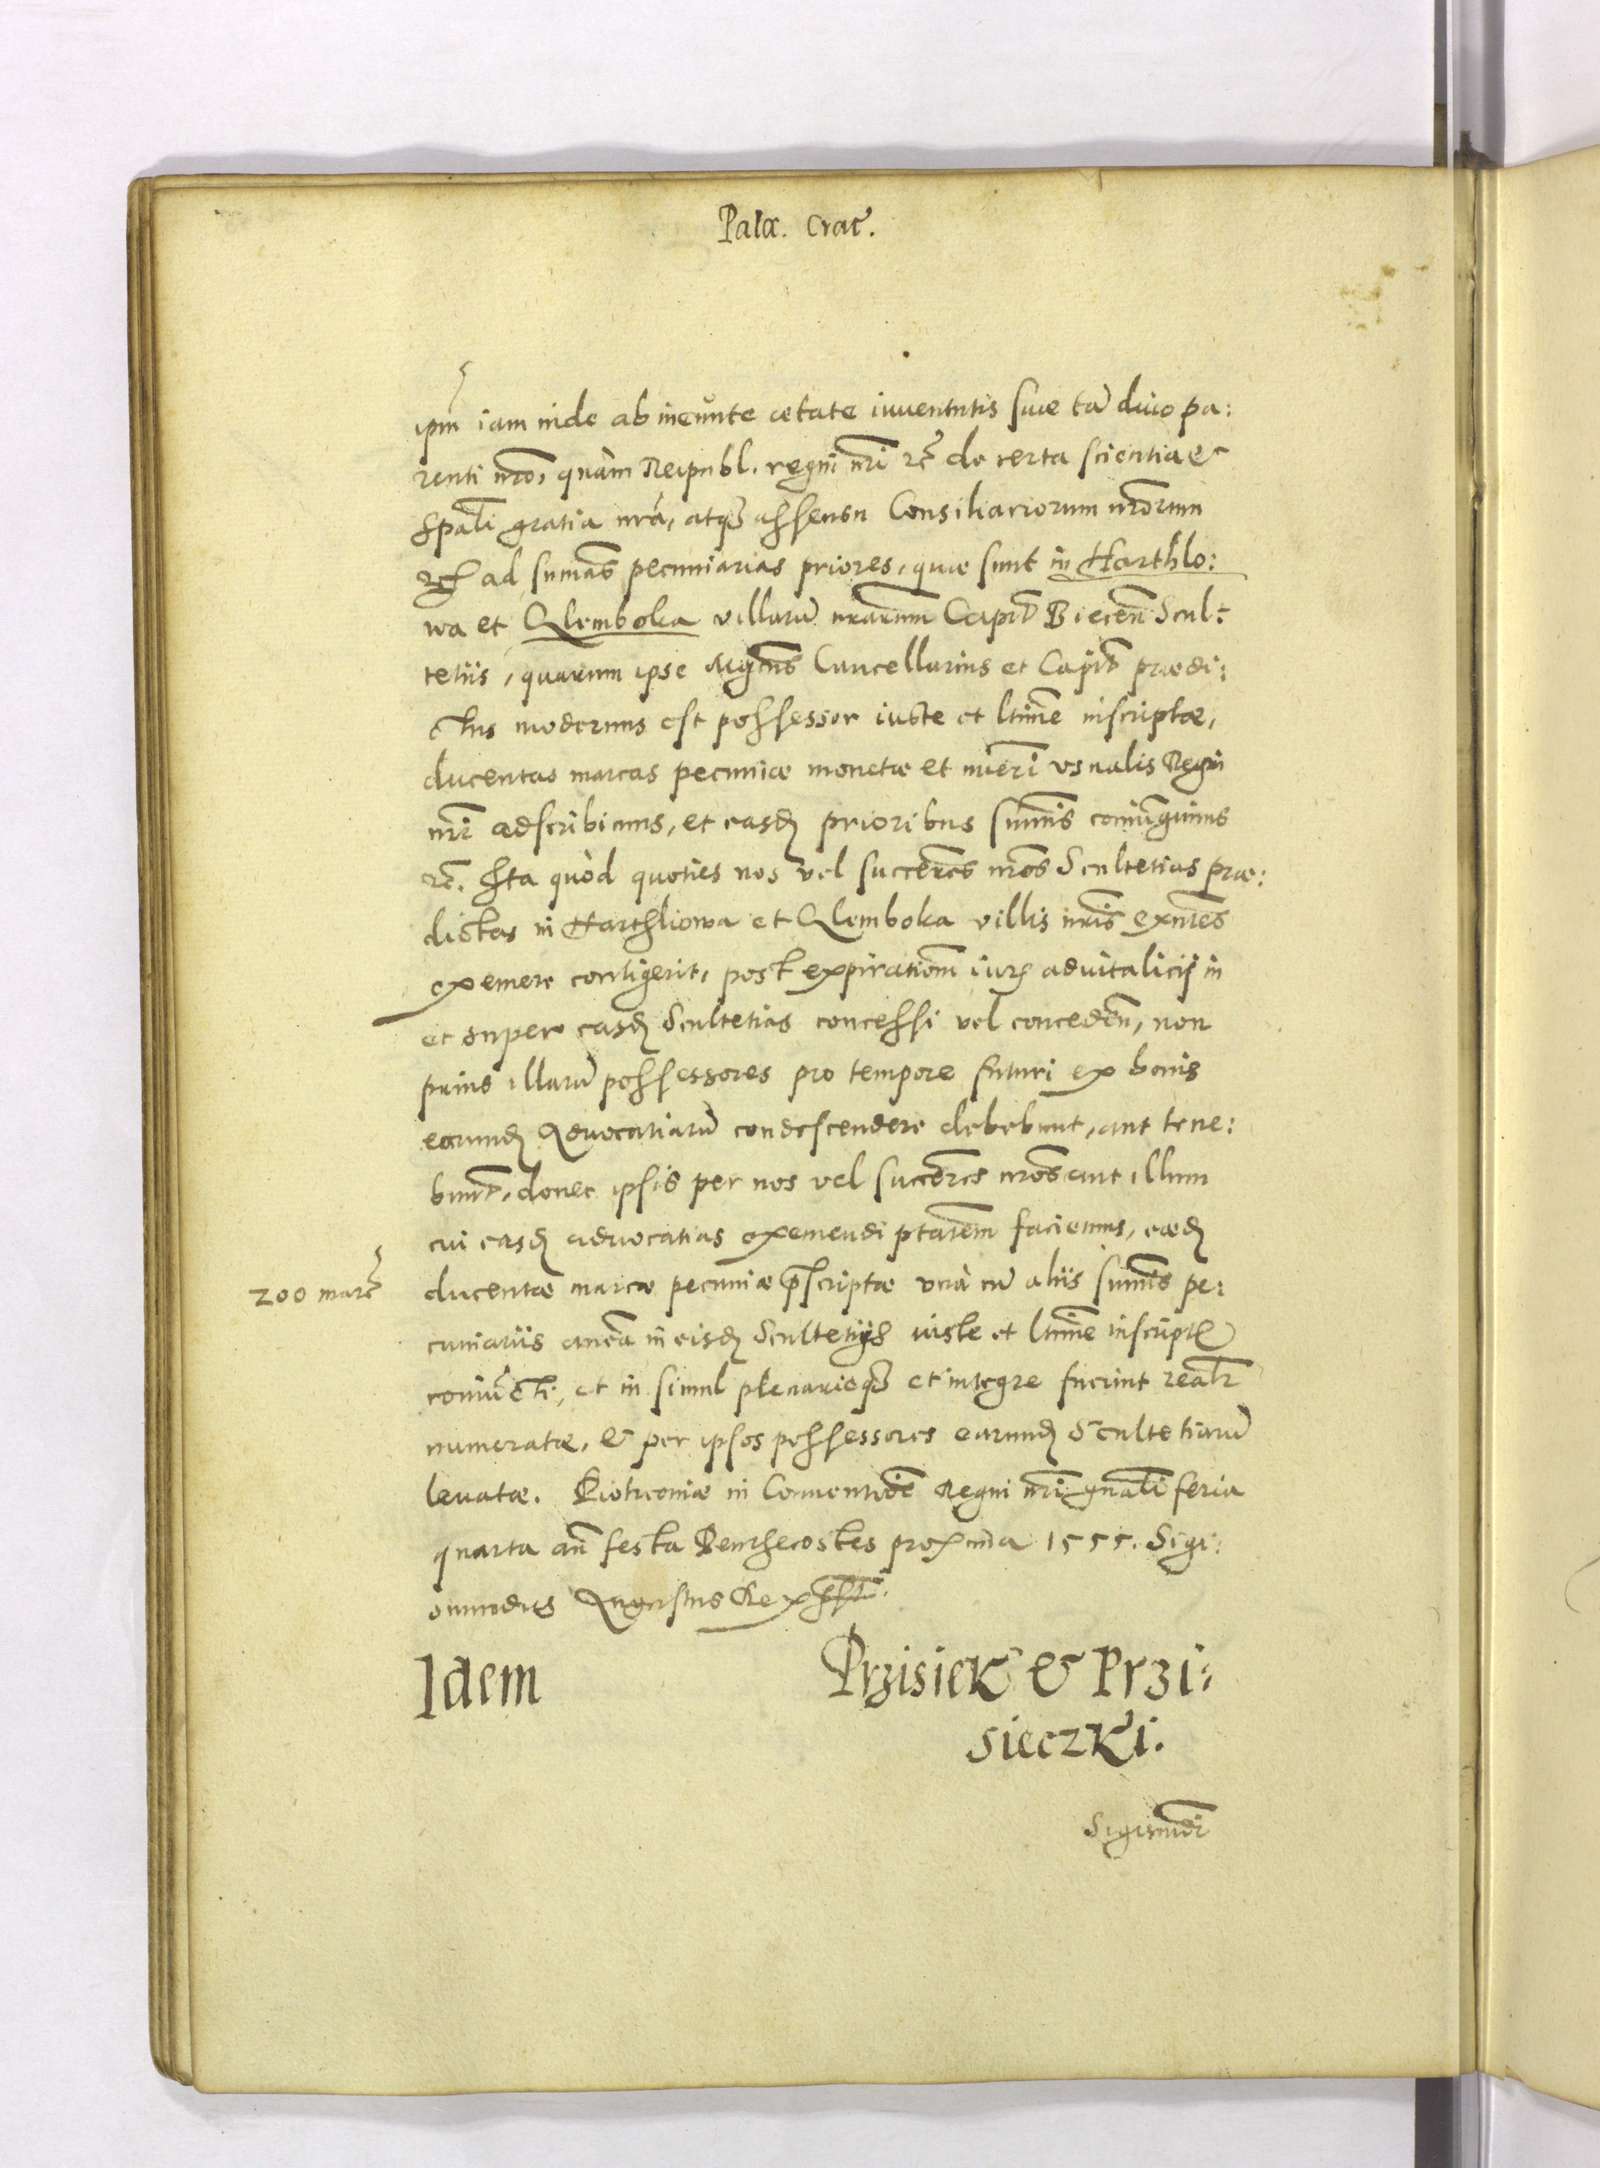 Pala. Crac̃.
ipm̃ iam inde ab ineŭnte ætate iuuentutis suæ tã diuo pa:
renti nr̃o, quàm Reipubl. regni nr̃i &c̃ de certa scientia et
spãli gratia nr̃a, atq₃ assensu Consiliariorum nr̃orum
&c̃ ad sum̃as pecuniarias priores, quæ sunt in Harthlo:
wa et Glemboka villarũ nr̃arum Capit̃ Biecen̄ Scul:
tetiis, quarum ipse Mgc̃us Cancellarius et Capit̃ prædi:
ctus modernus est possessor iuste et ltim̃e inscriptæ,
ducentas marcas pecuniæ monetæ et nũeri usualis Regni
nr̃i adscribimus, et easd̃ prioribus sum̃is coniũgimus
&c̃. Ita quòd quoties nos vel succẽres nr̃os Scultetias præ:
dictas in Harthliowa et Glemboka villis nr̃is exñtes
exemere contigerit, post expiratiom̃ iuris aduitalicij in
et super easd̃ Scultetias concessi vel conceden̄, non
prius illarũ possessores pro tempore futuri ex bonis
earund̃ Aduocatiarũ condescendere debebunt, aut tene:
bunt̃, donec ipsis per nos vel succẽres nr̃os aut illum
cui easd̃ aduocatias exemendi ptatem̃ faciemus, eæd̃
200 marc̃
ducentæ marcæ pecuniæ p̃scriptæ unà cũ aliis sum̃is pe:
cuniariis anteà in eisd̃ Scultetijs iuste et ltim̃e inscript̃
coniũcti, et in simul plenarieq₃ et integre fuerint realr̃
numeratæ, & per ipsos possessores earund̃ Scultetiarũ
leuatæ. Piotrconiæ in Conuentiõe Regni nr̃i gnãli feria
quarta añ festa Penthecostes proxima 1555. Sigi:
smundus Augustus Rex
Idem Przisiek & Przi:
sieczki.
Sigismũdi